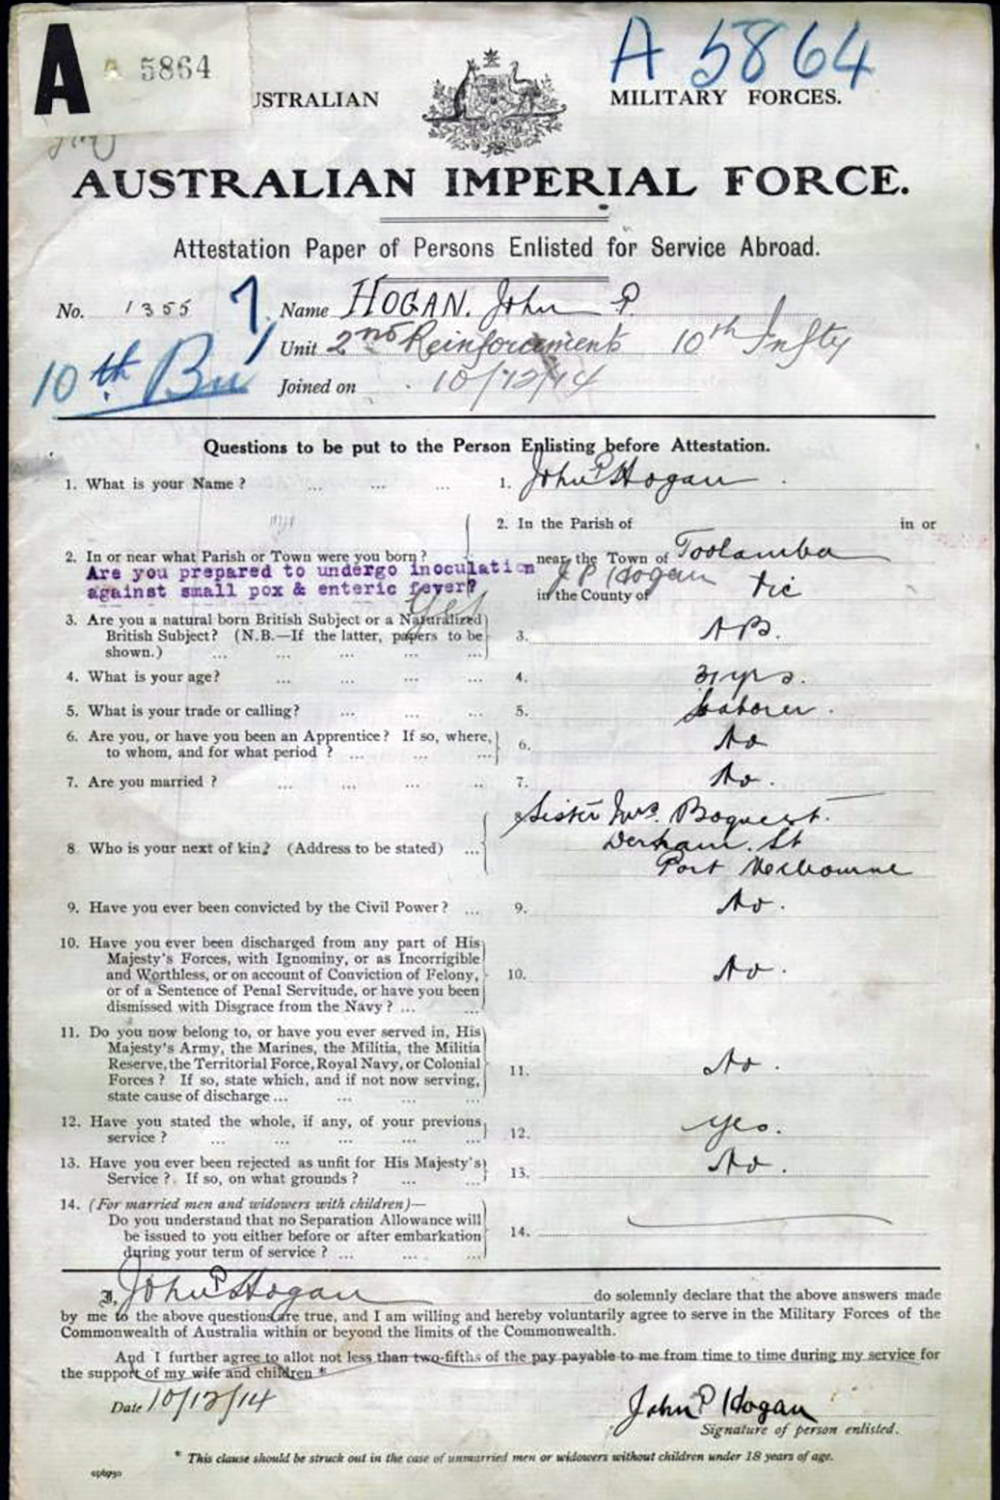 A A 5864
A 5864
AUSTRALIAN MILITARY FORCES.
AUSTRALIAN IMPERIAL FORCE.
Attestation Paper of Persons Enlisted for Service Abroad.
No. 1355 Name HOGAN. John P.
Unit 2nd Reinforcements 10th Infty
10th Bn
Joined on 10/12/14
Questions to be put to the Person Enlisting before Attestation.
1. What is your Name? ... ... ... 1. John P Hogan
2. In the Parish of in or
2. In or near what Parish or Town were you born? near the Town of Toolamba
Are you prepared to undergo inoculation
against small pox & enteric fever? Yes J P Hogan
in the County of Vic
3. Are you a natural born British Subject or a Naturalized
British Subject? (N.B.—If the latter, papers to be
shown.) ... ... ... ... ... 3.
4. What is your age? ... ... ... ... 4. 31 yrs.
5. What is your trade or calling? ... ... ... 5. Laborer.
6. Are you, or have you been an Apprentice? If so, where,
to whom, and for what period? ... ... ... 6. No
7. Are you married? ... ... ... .. 7. No.
8. Who is your next of kin? (Address to be stated) ... 8. Sister Mrs. Boquest.
Derham. St
Port Melbourne
9. Have you ever been convicted by the Civil Power? ... 9. No.
10. Have you ever been discharged from any part of His
Majesty's Forces, with Ignominy, or as Incorrigible
and Worthless, or on account of Conviction of Felony,
or of a Sentence of Penal Servitude, or have you been
dismissed with Disgrace from the Navy? ... ... 10. No.
11. Do you now belong to, or have you ever served in, His
Majesty's Army, the Marines, the Militia, the Militia
Reserve, the Territorial Force, Royal Navy, or Colonial
Forces? If so, state which, and if not now serving,
state cause of discharge... ... ... ... 11. No.
12. Have you stated the whole, if any, of your previous
service? ... ... ... ... ... 12. Yes.
13. Have you ever been rejected as unfit for His Majesty's
Service? If so, on what grounds? ... ... 13. No.
14. (For married men and widowers with children)—
Do you understand that no Separation Allowance will
be issued to you either before or after embarkation
during your term of service? ... ... ... 14.
I, John P Hogan do solemnly declare that the above answers made
by me to the above questions are true, and I am willing and hereby voluntarily agree to serve in the Military Forces of the
Commonwealth of Australia within or beyond the limits of the Commonwealth.
And I further agree to allot not less than two-fifths of the pay payable to me from time to time during my service for
the support of my wife and children *
Date 10/12/14 John P Hogan
Signature of person enlisted.
* This clause should be struck out in the case of unmarried men or widowers without children under 18 years of age.